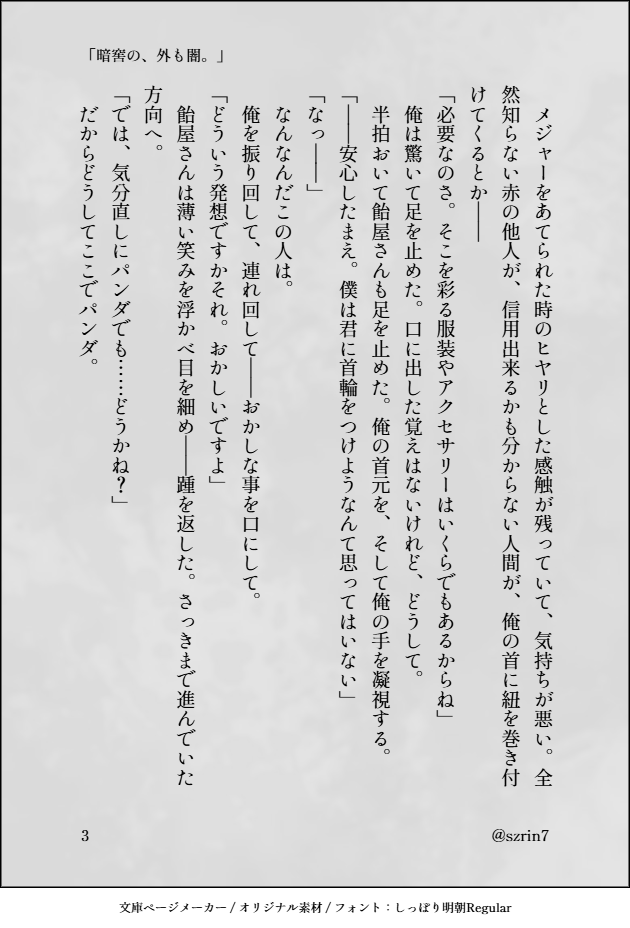 「暗窖の、外も闇。」
メジャーをあてられた時のヒヤリとした感触が残っていて、気持ちが悪い。全
然知らない赤の他人が、信用出来るかも分からない人間が、俺の首に紐を巻き付
けてくるとか――
「必要なのさ。そこを彩る服装やアクセサリーはいくらでもあるからね」
俺は驚いて足を止めた。口に出した覚えはないけれど、どうして。
半拍おいて飴屋さんも足を止めた。俺の首元を、そして俺の手を凝視する。
「――安心したまえ。僕は君に首輪をつけようなんて思ってはいない」
「なっ――」
なんなんだこの人は。
俺を振り回して、連れ回して――おかしな事を口にして。
「どういう発想ですかそれ。おかしいですよ」
飴屋さんは薄い笑みを浮かべ目を細め――踵を返した。さっきまで進んでいた
方向へ。
「では、気分直しにパンダでも……どうかね？」
だからどうしてここでパンダ。
3
@szrin7
文庫ページメーカー / オリジナル素材 / フォント：しっぽり明朝Regular